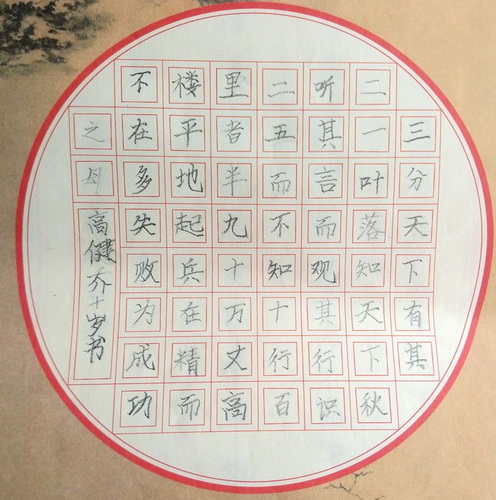 三分天下有其
二一叶落知天下秋
听其言而观其行识
二五而不知十行百
里者半九十万丈高
楼平地起兵在精而
不在多失败为成功
之母
高健乔十岁书